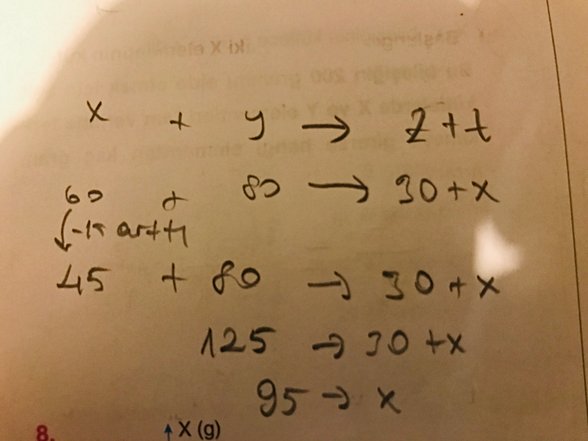 x + y → z + t
60 + 80 → 30 + x
-15 arttı
45 + 80 → 30 + x
125 → 30 + x
95 → x
8. X (g)